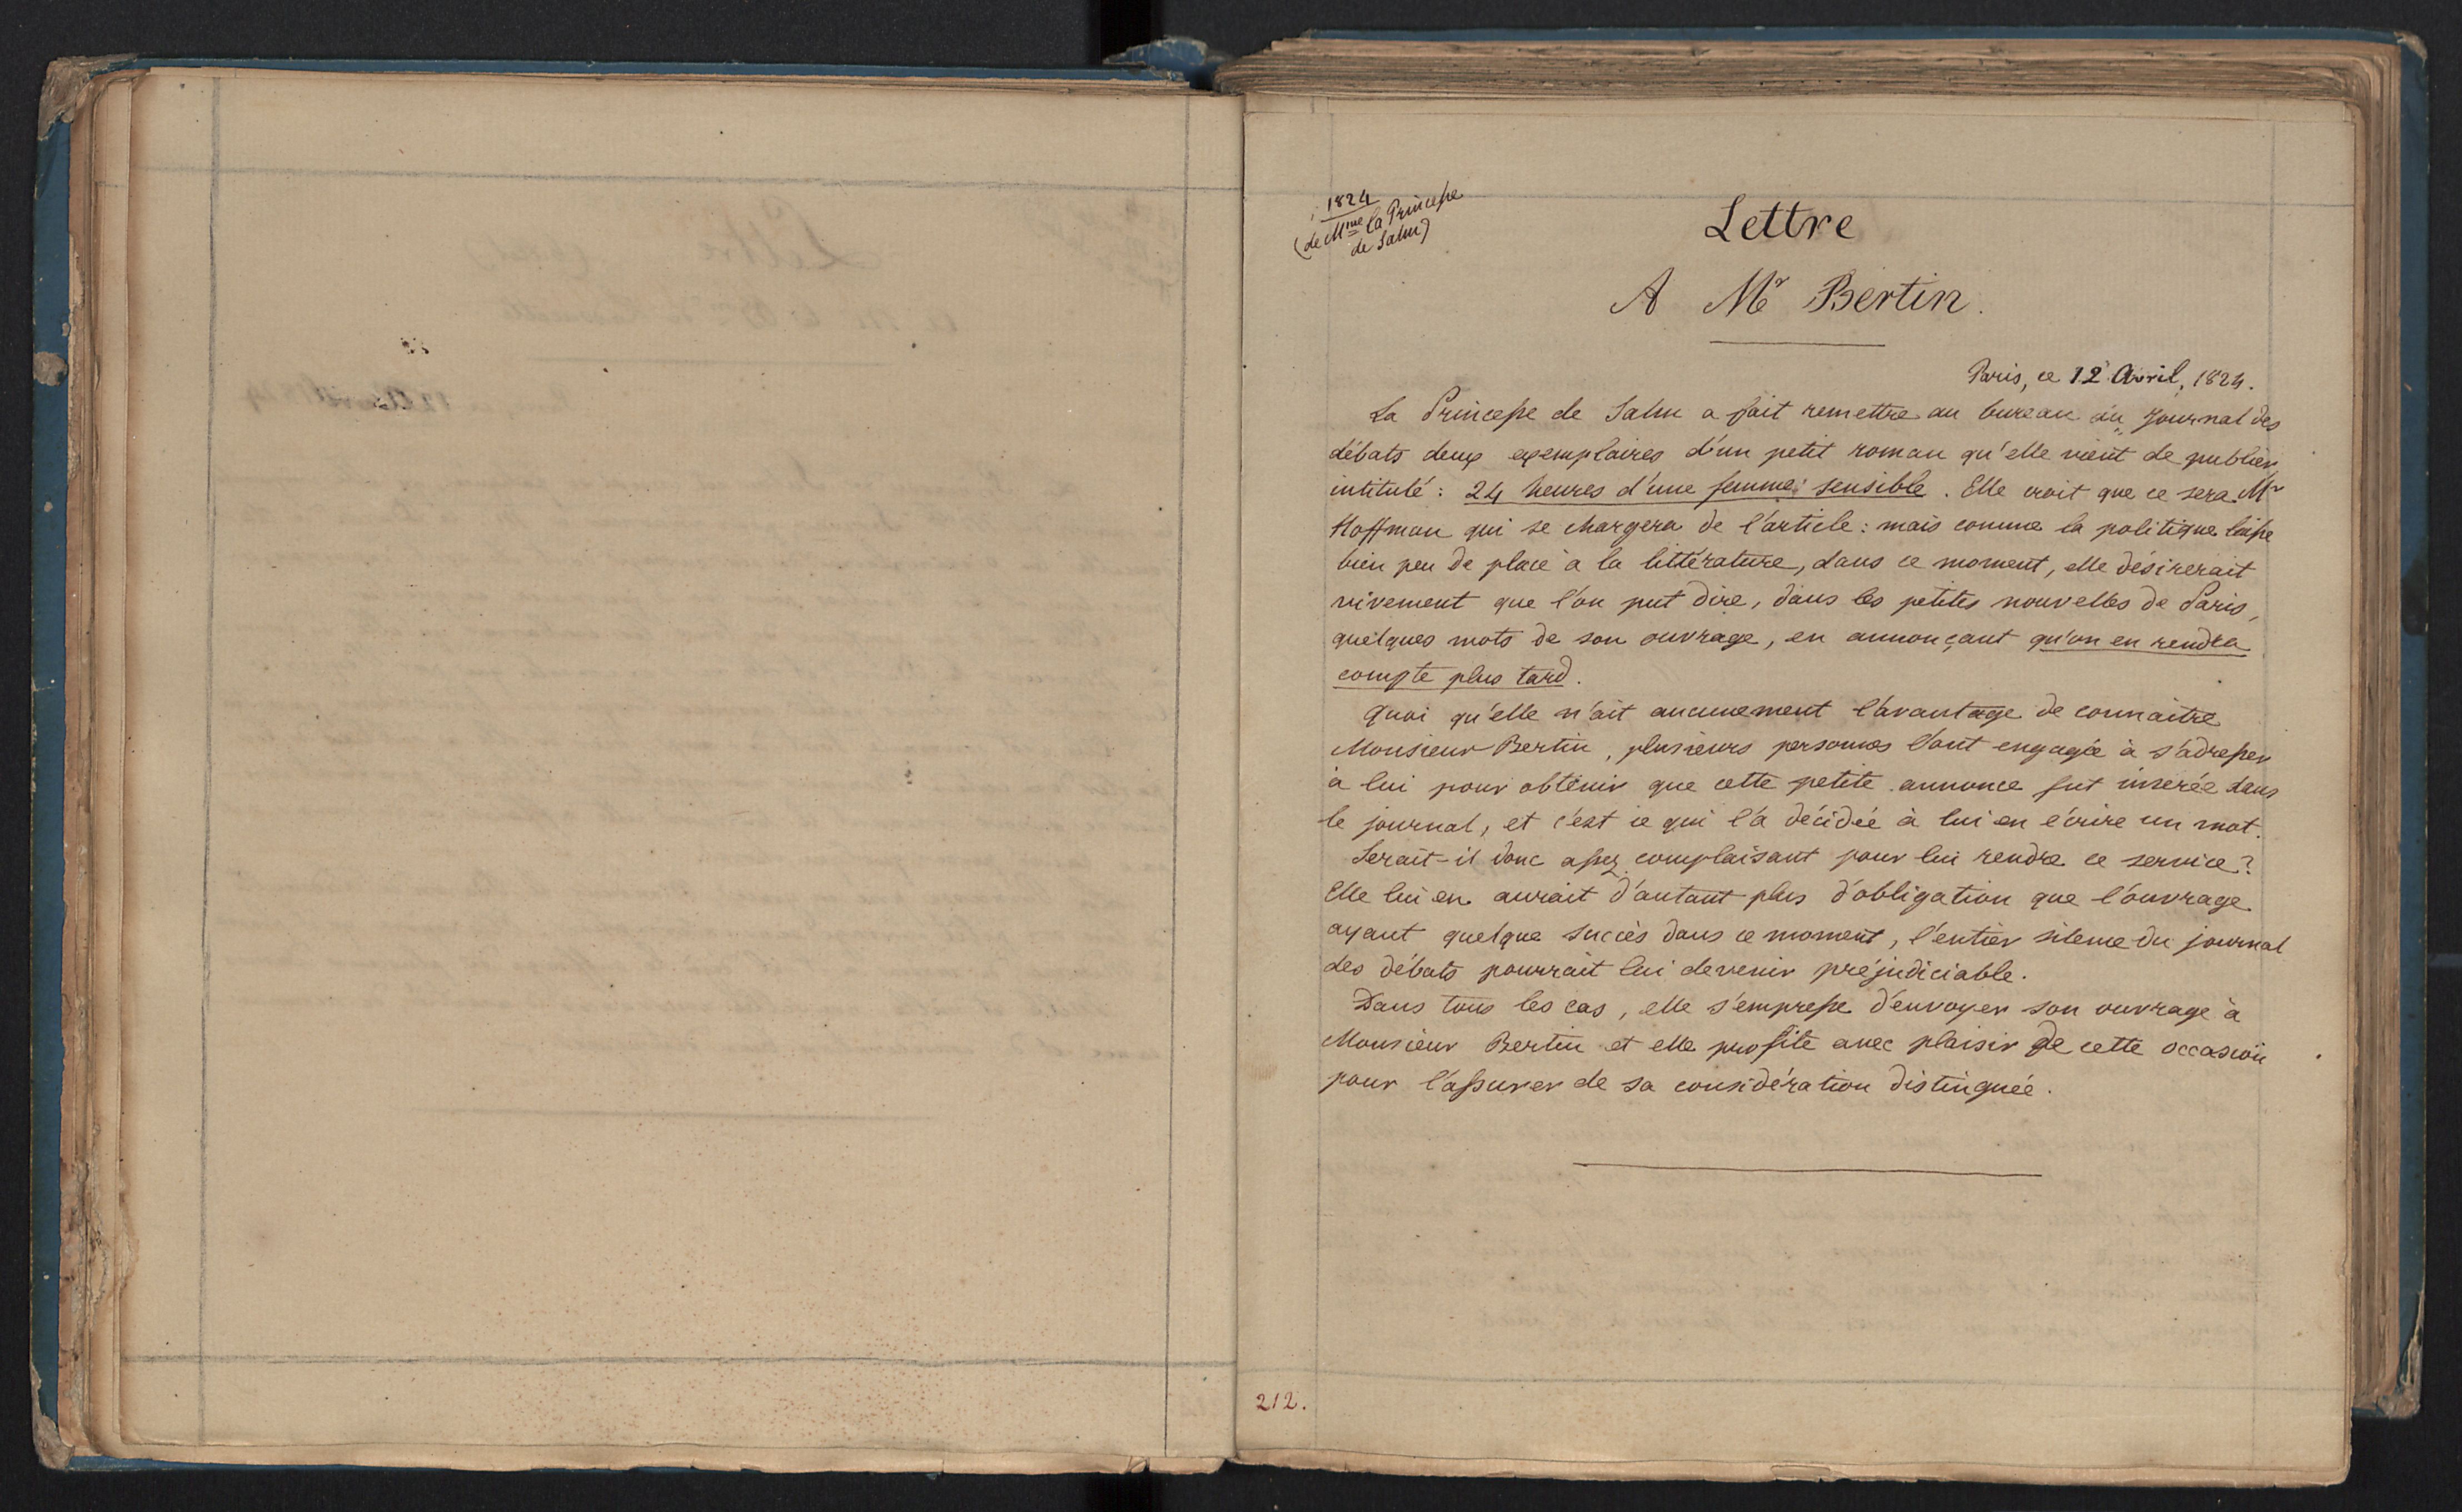 1824
(de Mme la Princesse
de Salm)
Lettre
A Mr Bertin.
Paris, ce 12 Avril, 1824.
La Princesse de Salm a fait remettre au bureau du Journal des
débats deux exemplaires d'un petit roman qu'elle vient de publier,
intitulé : 24 heures d'une femme sensible. Elle croit que ce sera Mr
Hoffman qui se chargera de l'article : mais comme la politique laisse
bien peu de place à la littérature, dans ce moment, elle désirerait
vivement que l'on put dire, dans les petites nouvelles de Paris,
quelques mots de son ouvrage, en annonçant qu'on en rendra
compte plus tard.
Quoi qu'elle n'ait aucunement l'avantage de connaitre
Monsieur Bertin, plusieurs personnes l'ont engagée à s'adresser
à lui pour obtenir que cette petite annonce fut inserée dans
le journal, et c'est ce qui l'a décidée à lui en écrire un mot.
Serait-il donc assez complaisant pour lui rendre ce service ?
Elle lui en aurait d'autant plus d'obligation que l'ouvrage
ayant quelque succès dans ce moment, l'entier silence du journal
des débats pourrait lui devenir préjudiciable.
Dans tous les cas, elle s'empresse d'envoyer son ouvrage à
Monsieur Bertin et elle profite avec plaisir de cette occasion
pour l'assurer de sa considération distinguée.
212.